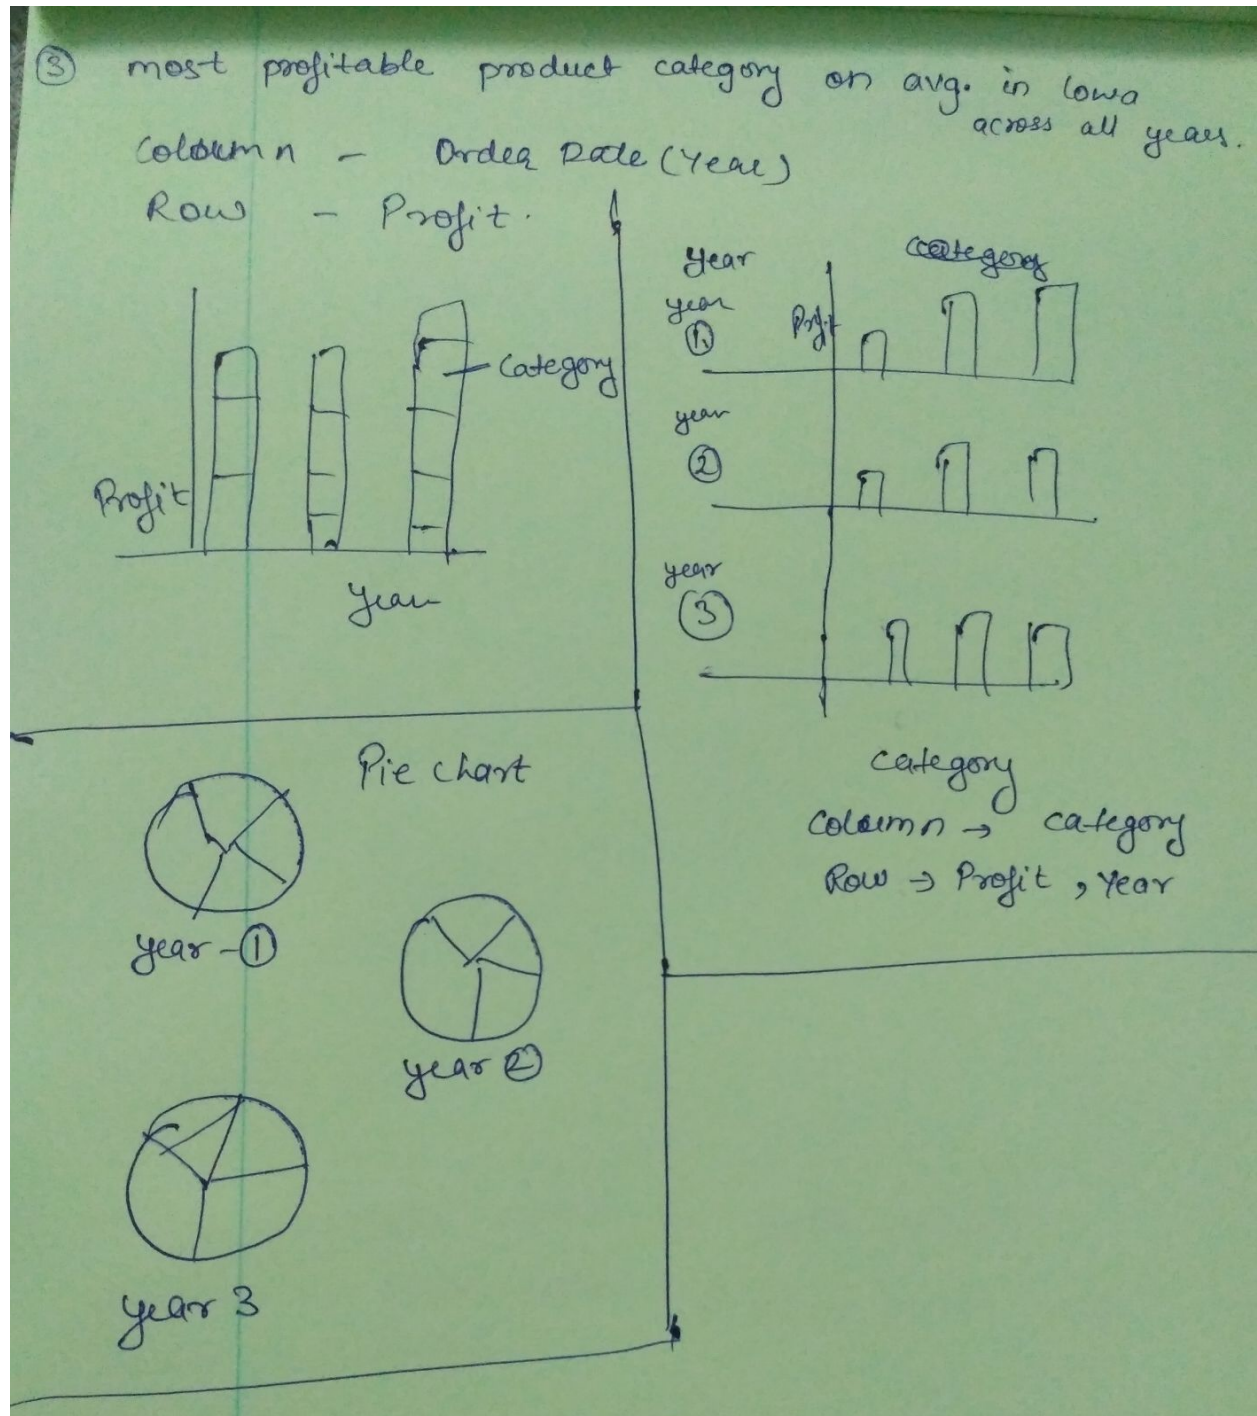 ③ most profitable product category on avg. in Iowa
across all years.
Coloumn - Order Date (Year)
Row - Profit.
Category
Profit
Year
Year
Category
year
①
Profit
year
②
year
③
Category
Column → Category
Row → Profit, Year
Pie Chart
year-①
year ②
year 3